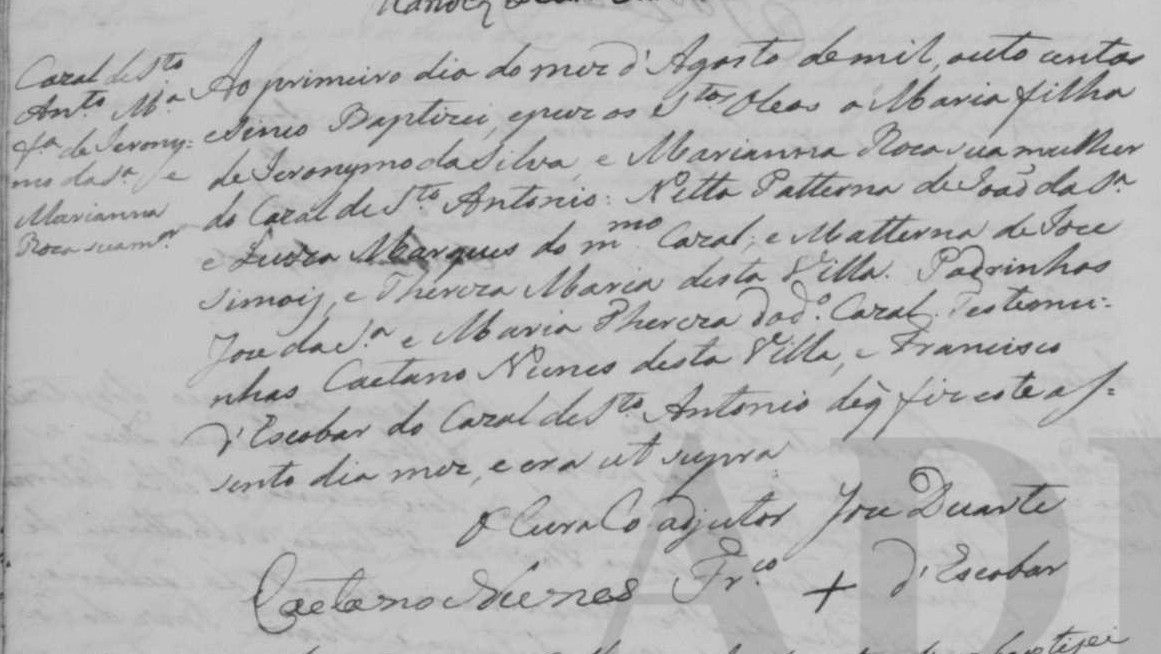 Cazal de Sto
Anto Ma
fa de Jerony:
mo da Sa e
Marianna
Roca sua mer
Ao primeiro dia do mez d'Agosto de mil, outo centos
e Sinco Baptizei, e puz os Stos Oleos a Maria filha
de Jeronymo da Silva, e Marianna Roca sua mulher
do Cazal de Sto Antonio: Netta Patterna de João da Sa
e Luiza Marques do mmo Cazal, e Matterna de Joze
Simois, e Thereza Maria desta Villa. Padrinhos
Joze da Sa e Maria Thereza do do Cazal. Testemu:
nhas Caetano Nunes desta Villa, e Francisco
d'Escobar do Cazal de Sto Antonio de q̃ fiz este as:
sento dia mez, e era ut supra
O Cura Coadjutor Joze Duarte
Caetano Nunes Frco + d'Escobar
AD